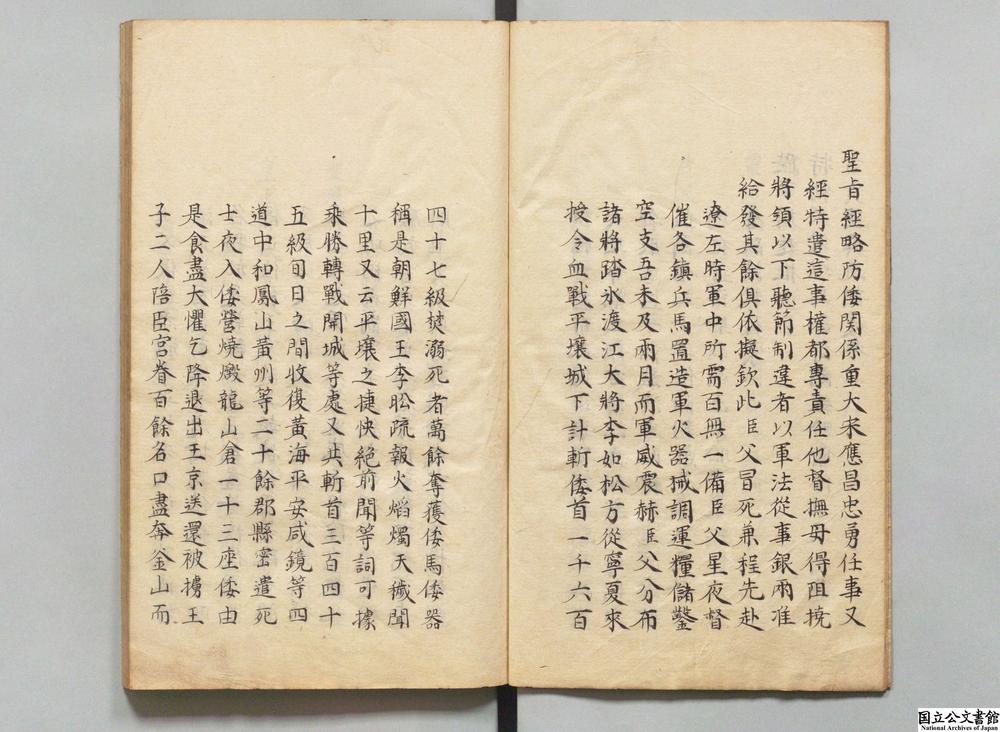 聖旨經略防倭関係重大宋應昌忠勇任事又
經特遣這事權都專責任他督撫毋得阻撓
將領以下聽節制違者以軍法從事銀兩准
給發其餘俱依擬欽此臣父冒死兼程先赴
遼左時軍中所需百無一備臣父星夜督
催各鎮兵馬置造軍火器械調運糧儲鑿
空支吾未及兩月而軍威震赫臣父分布
諸將踏氷渡江大將李如松方從寧夏來
授令血戰平壤城下計斬倭首一千六百
四十七級焚溺死者萬餘奪獲倭馬倭器
稱是朝鮮國王李昖疏報火焰燭天穢聞
十里又云平壤之捷快絶前聞等詞可據
乘勝轉戰開城等處又共斬首三百四十
五級旬日之間收復黃海平安咸鏡等四
道中和鳳山黃州等二十餘郡縣密遣死
士夜入倭營燒燬龍山倉一十三座倭由
是食盡大懼乞降退出王京送還被擄王
子二人陪臣宮眷百餘名口盡奔釜山而
国立公文書館
National Archives of Japan